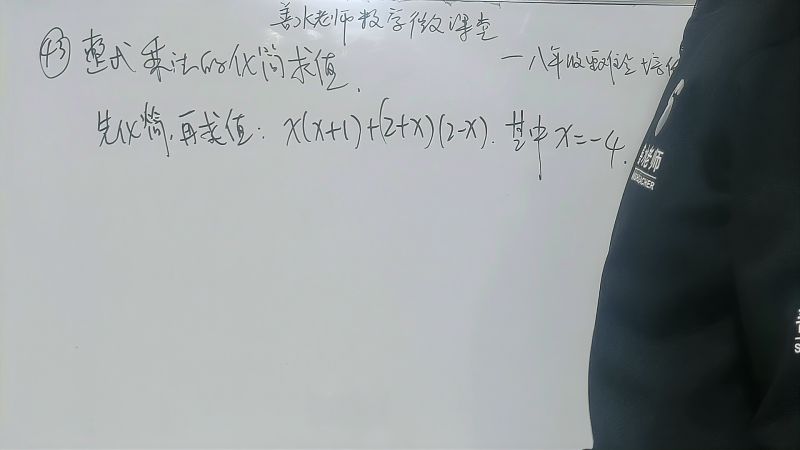 善水老师数学微课堂
㊸ 整式乘法的化简求值.
一八年级
先化简,再求值: x(x+1)+(2+x)(2-x). 其中 x=-4.
老师